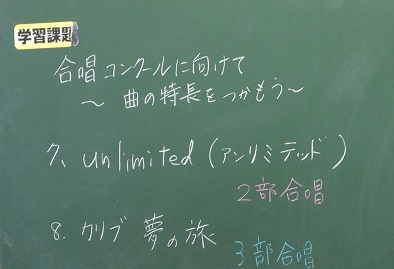 学習課題
合唱コンクールに向けて
～曲の特長をつかもう～
7、unlimited(アンリミテッド)
2部合唱
8. カリブ 夢の旅
3部合唱